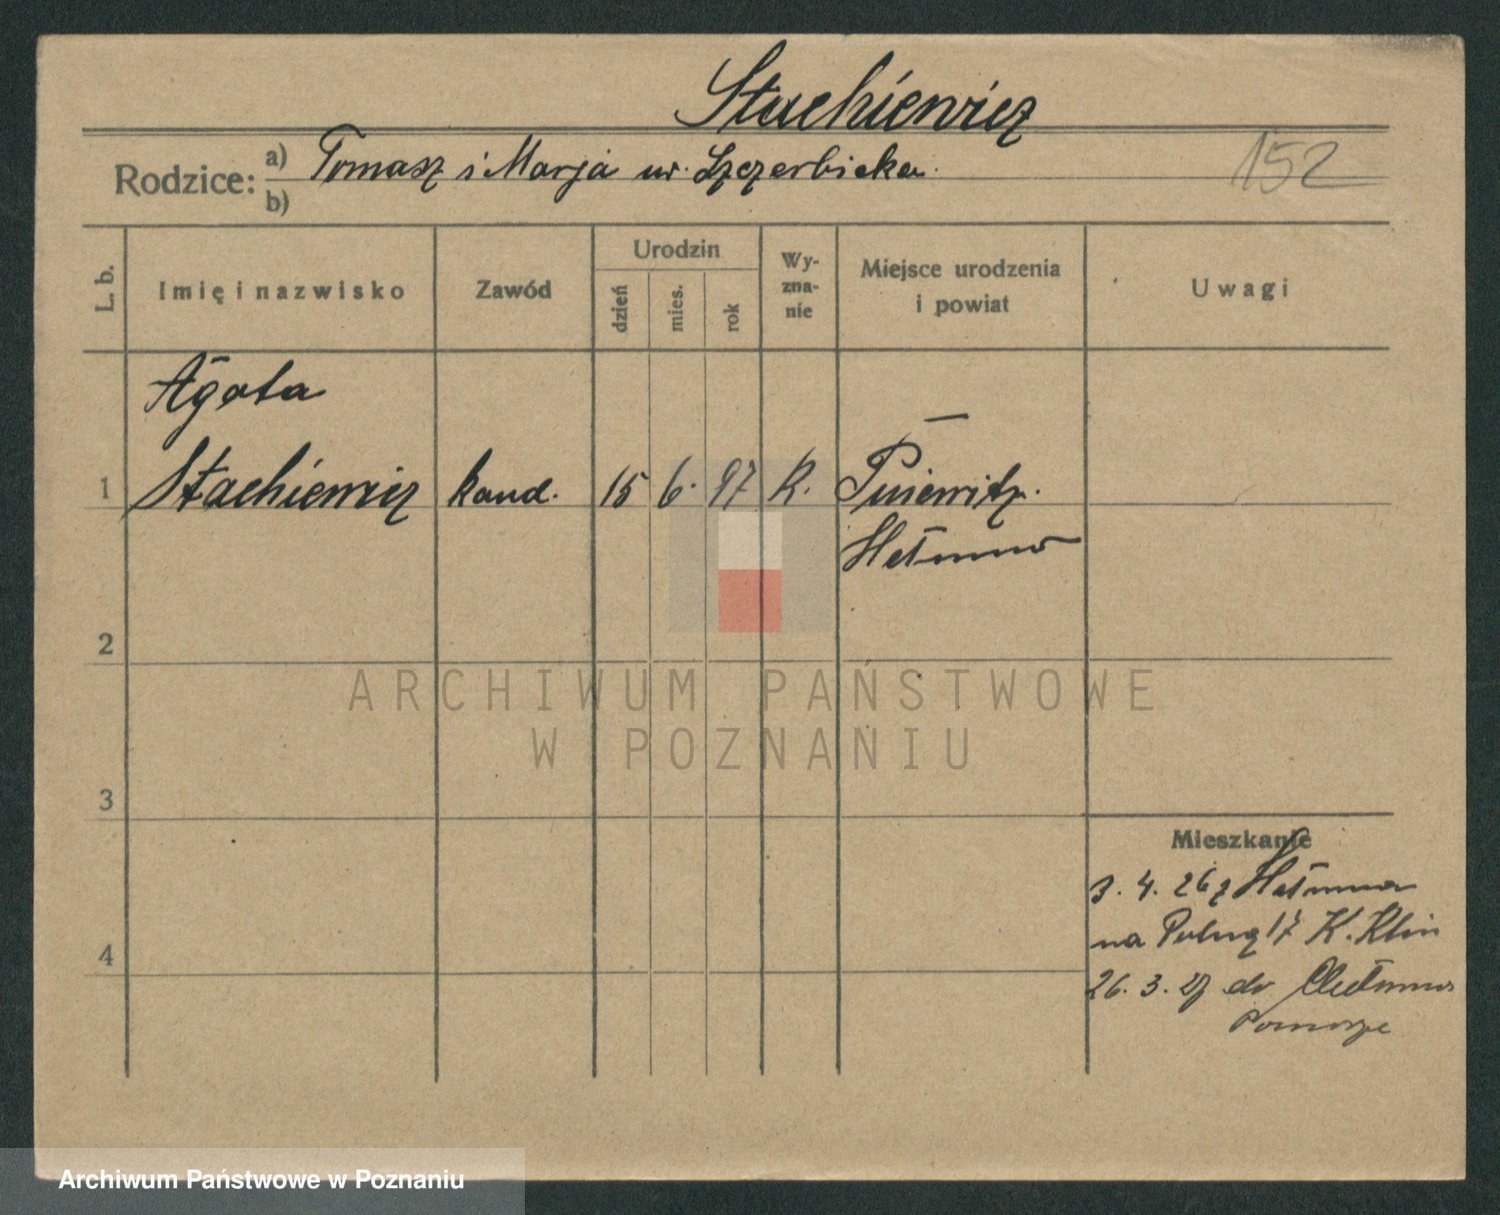 Stachiewicz
Rodzice: a) Tomasz i Marja ur. Szczerbicka.
152
b)
L. b.
Imię i nazwisko
Zawód
Urodzin
dzień
mies.
rok
Wy-
zna-
nie
Miejsce urodzenia
i powiat
Uwagi
Agata
1 Stachiewicz kand. 15 6. 97 R.
2
ARCHIWUM PAŃSTWOWE
W POZNANIU
3
Mieszkanie
3. 4. 26 z
4
na 17 K.
26. 3. 27 do
Pomorze
Archiwum Państwowe w Poznaniu